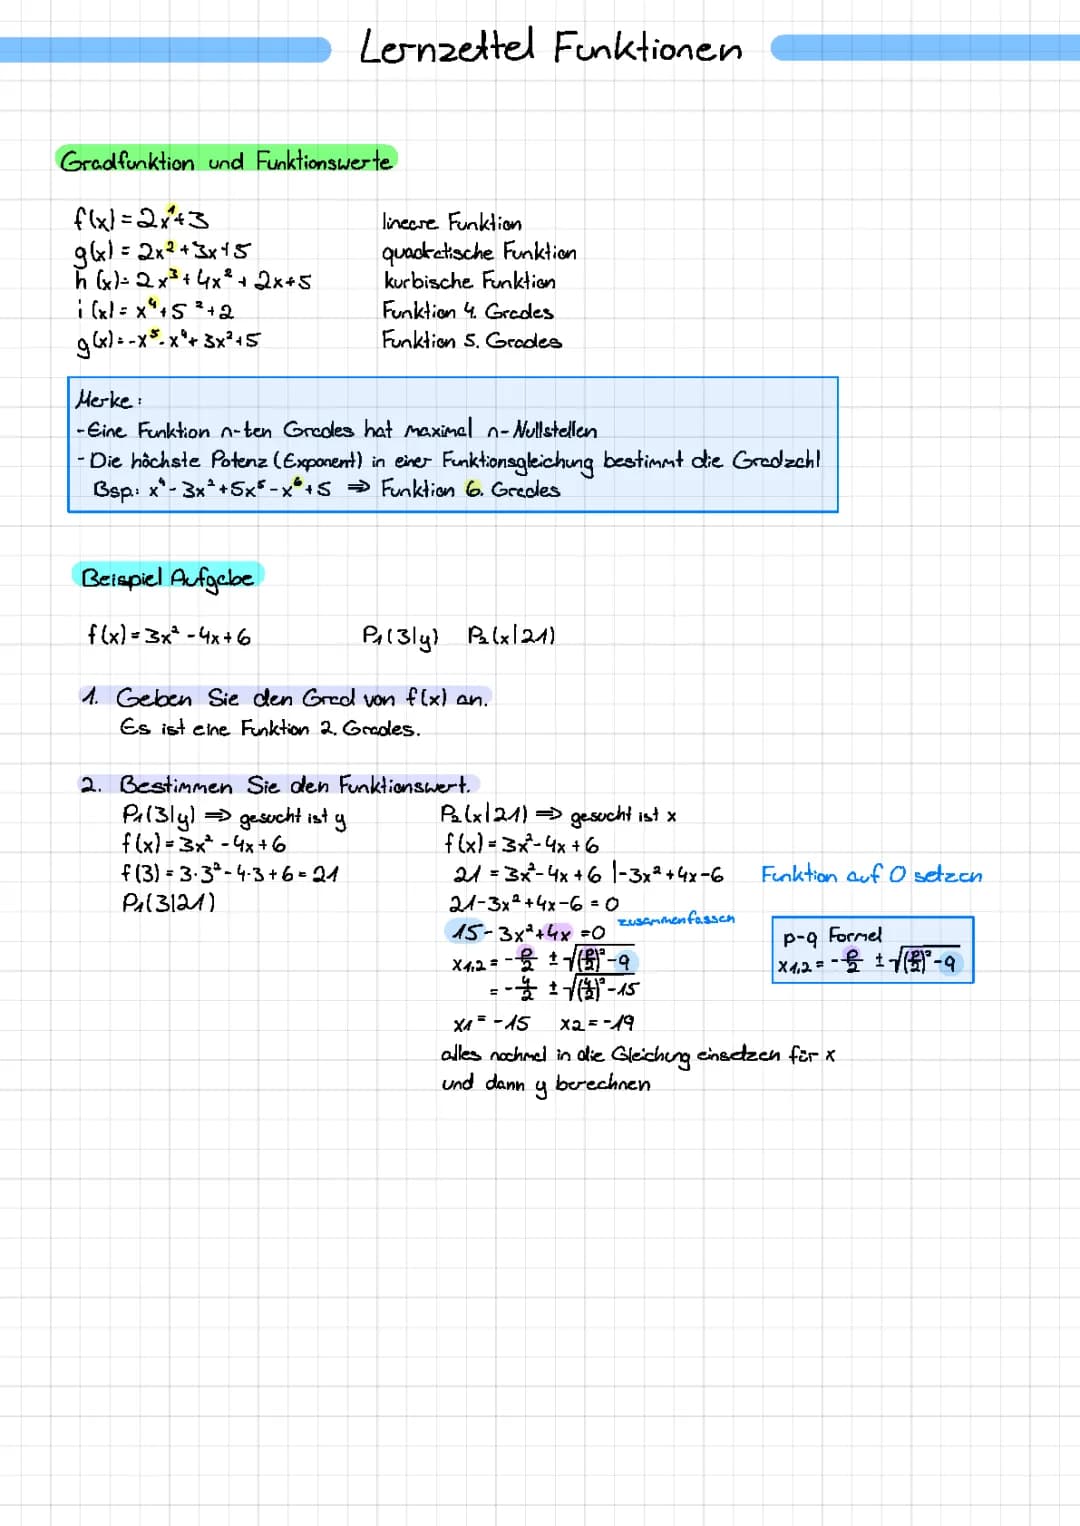 Lernzettel Funktionen
Gradfunktion und Funktionswerte
f(x) = 2x¹+3 lineare Funktion
g(x) = 2x² + 3x+5 quadratische Funktion
h (x) = 2x³ + 4x² + 2x+5 kurbische Funktion
i (x) = x⁴+5 ²+2 Funktion 4. Grades
g(x) = -x⁵- x⁴+ 3x²+5 Funktion 5. Grades
Merke:
-Eine Funktion n-ten Grades hat maximal n-Nullstellen
-Die höchste Potenz (Exponent) in einer Funktionsgleichung bestimmt die Gradzahl
Bsp.: x⁴- 3x² +5x⁵ - x⁶ +5 ⇒ Funktion 6. Grades
Beispiel Aufgabe
f(x) = 3x² - 4x + 6 P₁(3|y) P₂(x|21)
1. Geben Sie den Grad von f(x) an.
Es ist eine Funktion 2. Grades.
2. Bestimmen Sie den Funktionswert.
P₁(3|y) ⇒ gesucht ist y
f(x) = 3x² - 4x + 6
f(3) = 3·3² - 4·3 + 6 = 21
P₁(3|21)
P₂(x|21) ⇒ gesucht ist x
f(x) = 3x² - 4x + 6
21 = 3x² - 4x + 6 |-3x² + 4x - 6 Funktion auf 0 setzen
21-3x² + 4x - 6 = 0
zusammenfassen
15 - 3x² + 4x = 0
x1,2 = - p/2 ± √(p/2)² - q
= - 4/2 ± √(4/2)² - 15
x1 = -15 x2 = -19
alles nochmal in die Gleichung einsetzen für x
und dann y berechnen
p-q Formel
x1,2 = - p/2 ± √(p/2)² - q